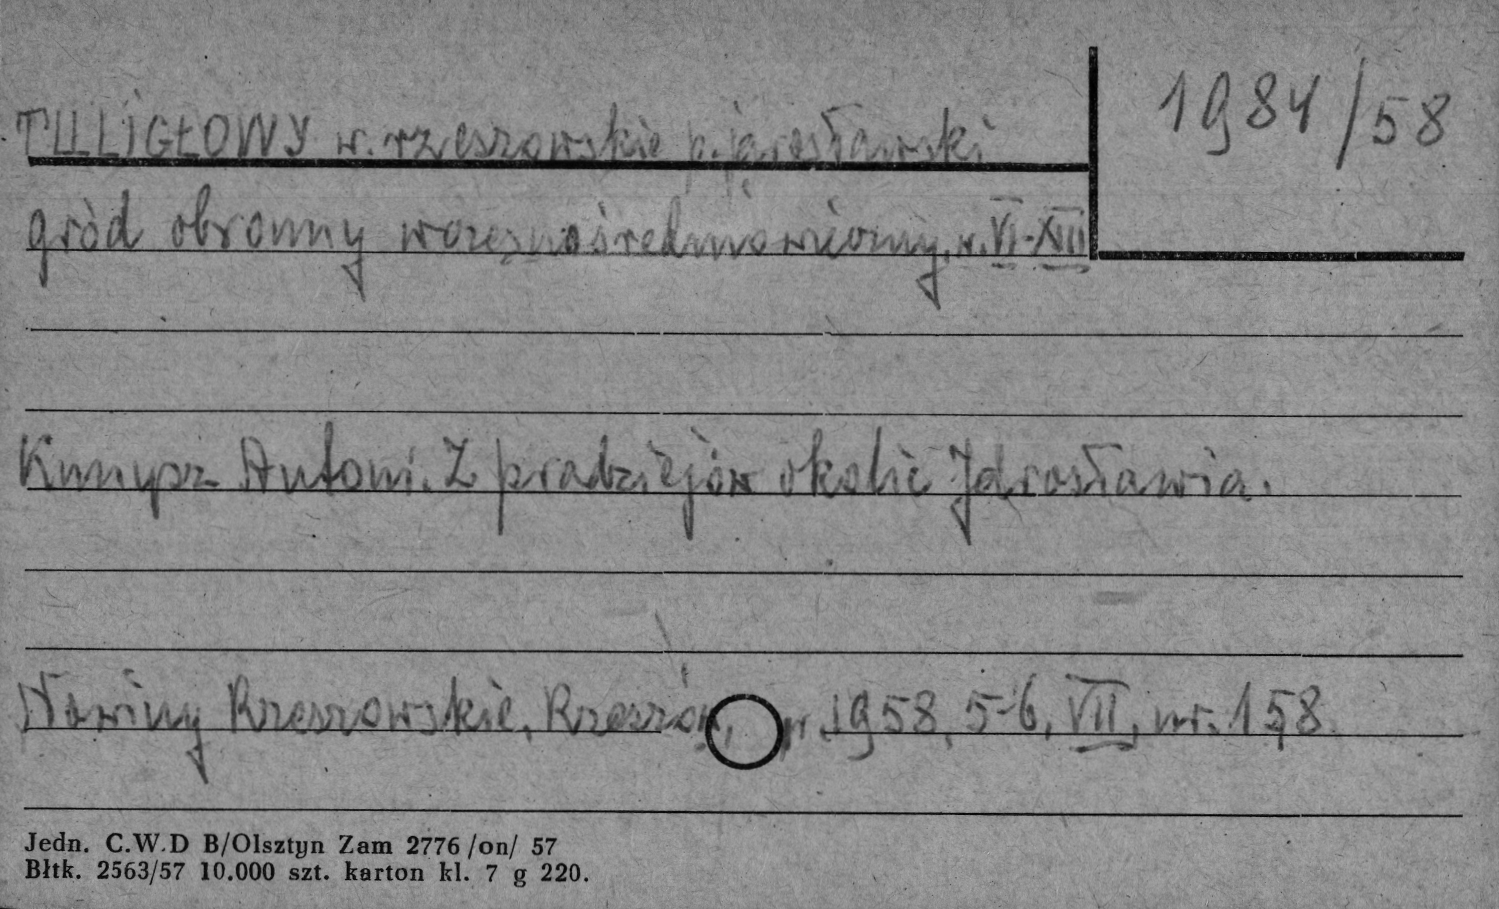 TULIGŁOWY w. rzeszowskie p. jarosławski
1984/58
gród obronny wczesnośredniowieczny, w. VI-XIII
Kunysz Antoni. Z pradziejów okolic Jarosławia.
Nowiny Rzeszowskie, Rzeszów, r. 1958, 5-6, VII, nr. 158.
Jedn. C.W.D B/Olsztyn Zam 2776 /on/ 57
Błtk. 2563/57 10.000 szt. karton kl. 7 g 220.